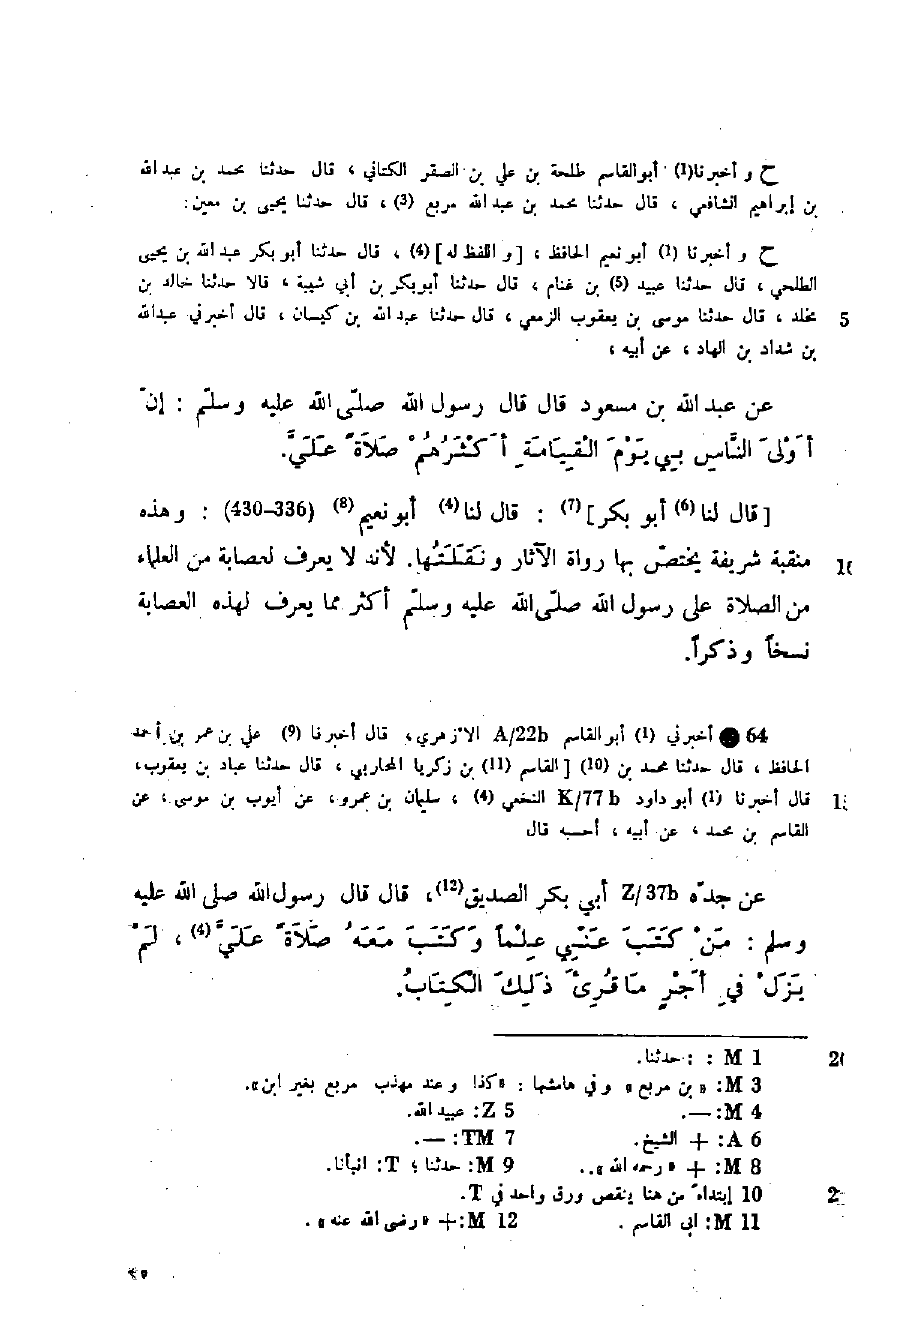 ح و أخبرنا(1) أبوالقاسم طلحة بن علي بن الصقر الكتاني ، قال حدثنا محمد بن عبدالله
بن إبراهيم الشافعي ، قال حدثنا محمد بن عبدالله مربع (3) ، قال حدثنا يحيى بن معين:
ح و أخبرنا (1) أبو نعيم الحافظ ، [و اللفظ له] (4) ، قال حدثنا أبو بكر عبدالله بن يحيى
الطلحي ، قال حدثنا عبيد (5) بن غنام ، قال حدثنا أبوبكر بن أبي شيبة ، قالا حدثنا خالد بن
5 مخلد ، قال حدثنا موسى بن يعقوب الزمعي ، قال حدثنا عبدالله بن كيسان ، قال أخبرني عبدالله
بن شداد بن الهاد ، عن أبيه ،
عن عبدالله بن مسعود قال قال رسول الله صلّى الله عليه وسلّم : إنّ
أَوْلَى النَّاسِ بِي يَوْمَ الْقِيَامَةِ أَكْثَرُهُمْ صَلَاةً عَلَيَّ.
[قال لنا (6) أبو بكر] (7) : قال لنا (4) أبو نعيم (8) (336–430) : وهذه
10 منقبة شريفة يختصّ بها رواة الآثار و نَقَلَتُها. لأنه لا يعرف لعصابة من العلماء
من الصلاة على رسول الله صلّى الله عليه وسلّم أكثر مما يعرف لهذه العصابة
نسخاً وذكراً.
64 ● أخبرني (1) أبوالقاسم A/22b الازهري، قال أخبرنا (9) علي بن عمر بن أحمد
الحافظ ، قال حدثنا محمد بن (10) [القاسم (11) بن زكريا المحاربي ، قال حدثنا عباد بن يعقوب،
قال أخبرنا (1) أبو داود K/77b النخعي (4) ، سليمان بن عمرو، عن أيوب بن موسى ، عن
القاسم بن محمد ، عن أبيه ، أحسبه قال
عن جدّه Z/37b أبي بكر الصديق(12)، قال قال رسول الله صلى الله عليه
وسلم : مَنْ كَتَبَ عَنِّي عِلْماً وَكَتَبَ مَعَهُ صَلَاةً عَلَيَّ (4) ، لَمْ
يَزَلْ فِي أَجْرٍ مَا قُرِئَ ذَلِكَ الْكِتَابُ.
1 M : : حدثنا.
3 M: «بن مربع» وفي هامشها : «كذا وعند مهذب مربع بغير ابن».
4 M: —. 5 Z: عبيدالله.
6 A: + الشيخ. 7 TM: —.
8 M: + «رحمه الله». 9 M: حدثنا ؛ T: انبأنا.
10 إبتداءً من هنا ينقص ورق واحد في T.
11 M: ابى القاسم . 12 M:+ «رضى الله عنه» .